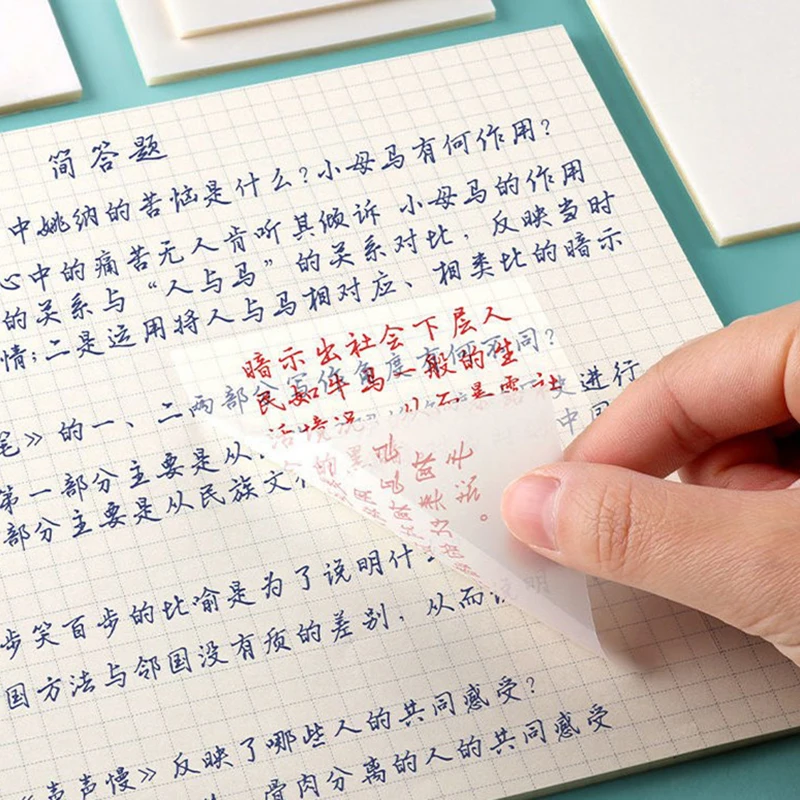 简答题
中姚纳的苦恼是什么?小母马有何作用?
心中的痛苦无人肯听其倾诉 小母马的作用
的关系与“人与马”的关系对比，反映当时
情;二是运用将人与马相对应、相类比的暗示
暗示出社会下层人
民如牛马一般的生
活情况
笔》的一、二两部分写作角度有何不同?
第一部分主要是从
部分主要是从民族文
步笑百步的比喻是为了说明什
国方法与邻国没有质的差别，从而说明
《声声慢》反映了哪些人的共同感受?
骨肉分离的人的共同感受